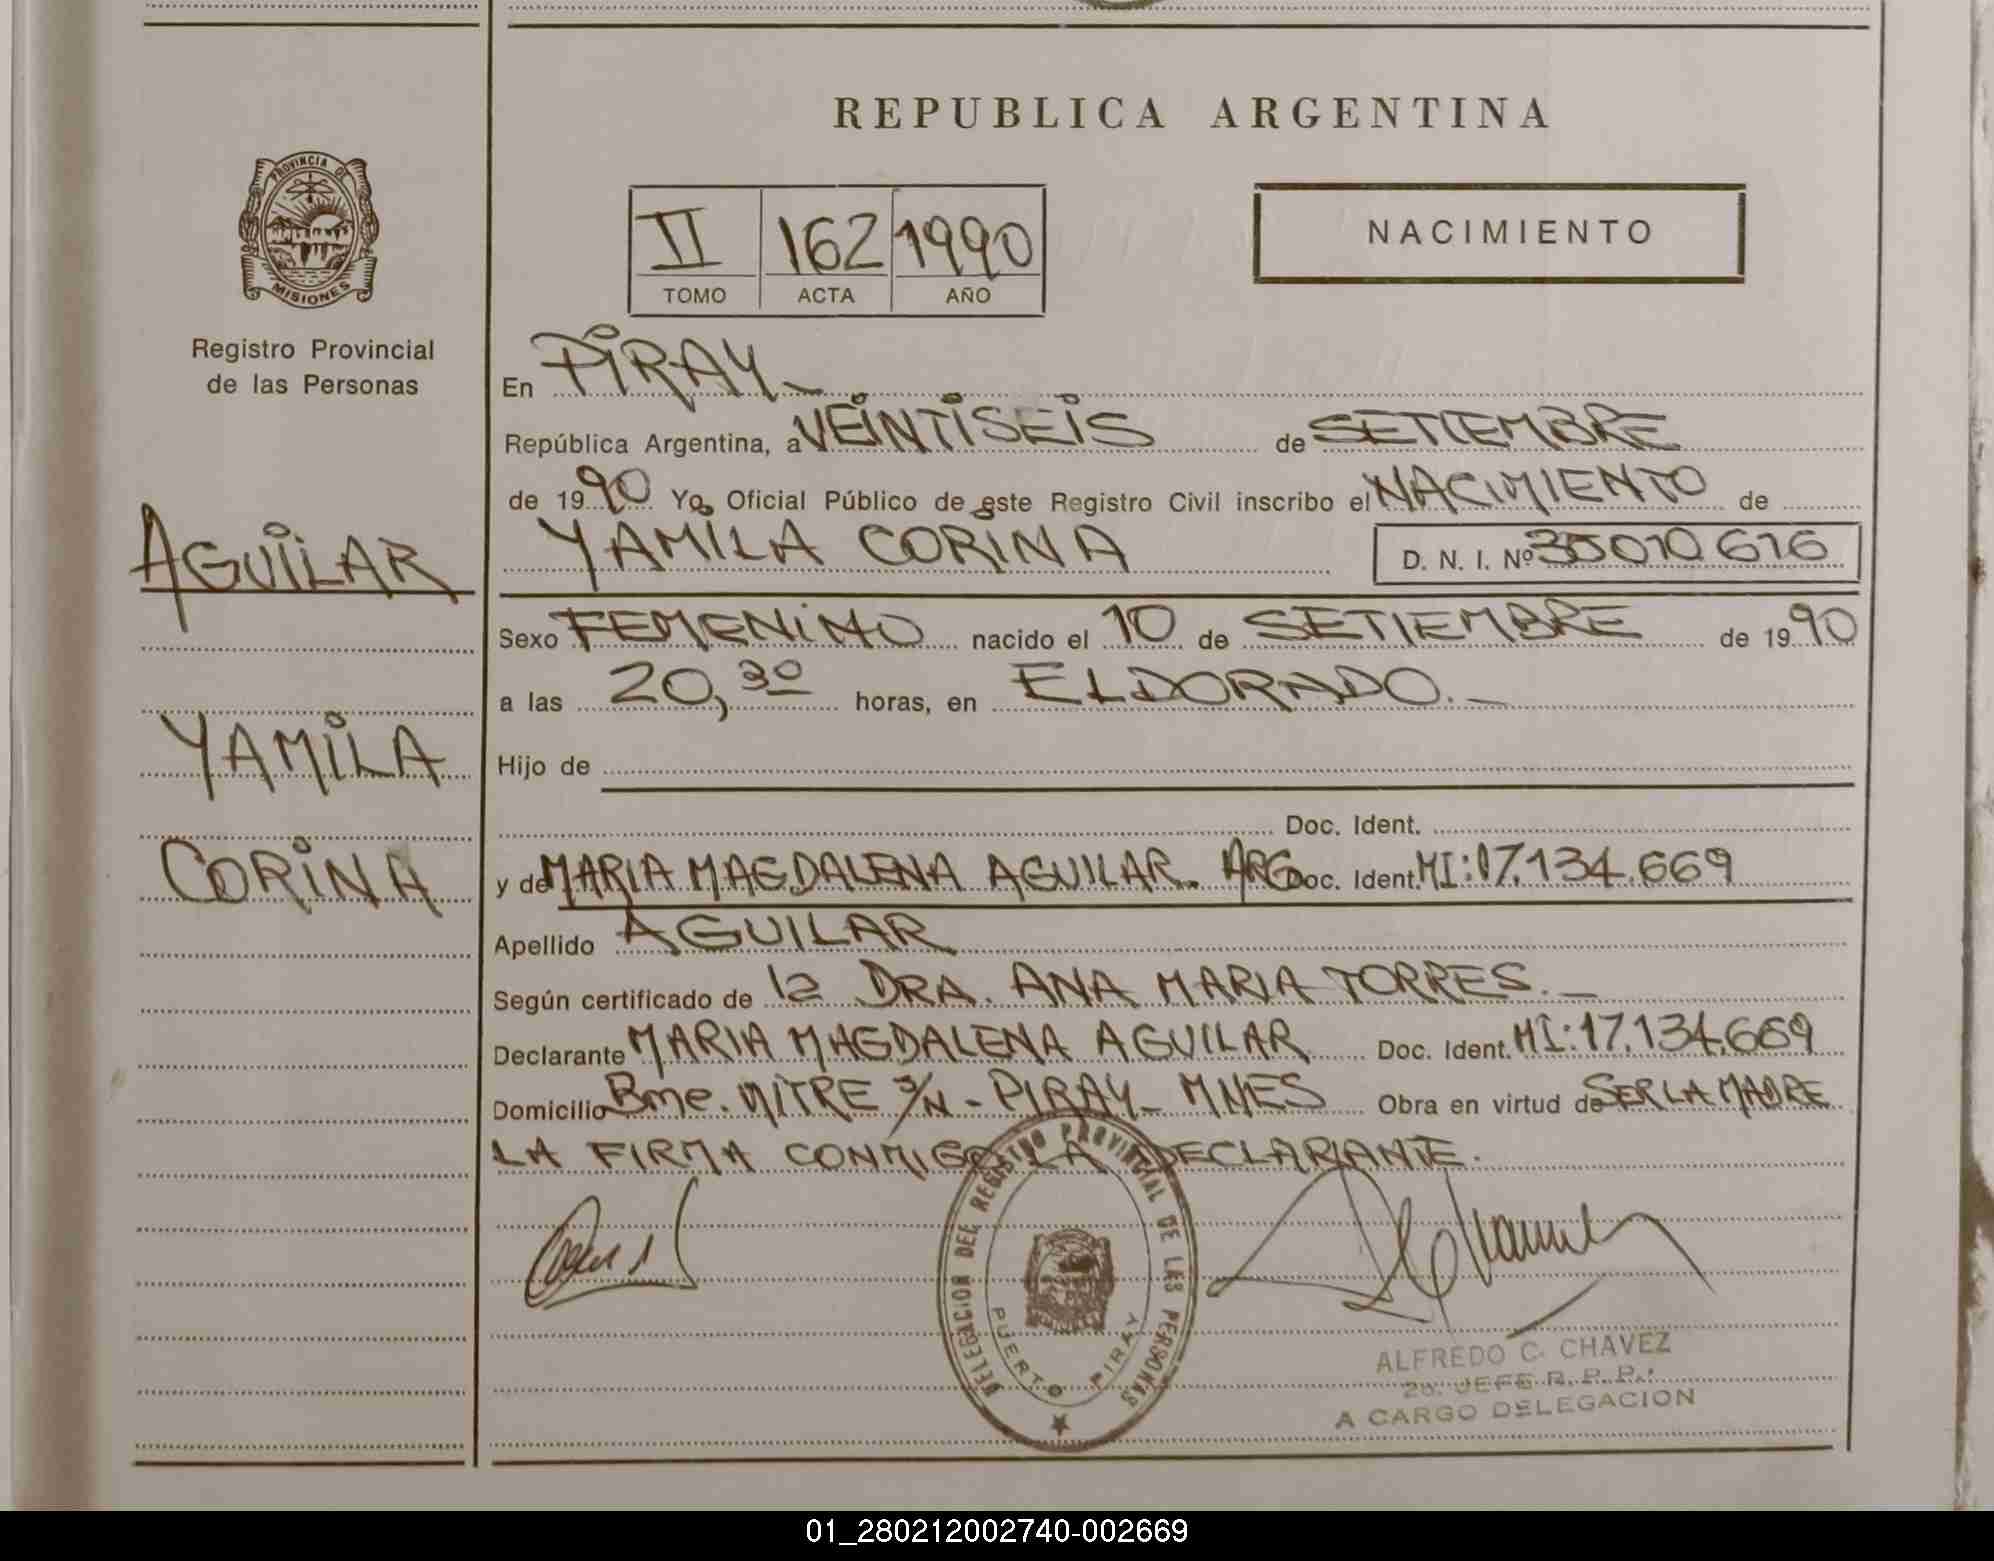 REPUBLICA ARGENTINA
PROVINCIA DE
MISIONES
Registro Provincial
de las Personas
II 162 1990
TOMO ACTA AÑO
NACIMIENTO
En PIRAY
República Argentina, a VEINTISEIS de SETIEMBRE
de 1990 Yo, Oficial Público de este Registro Civil inscribo el NACIMIENTO de
YAMILA CORINA D. N. I. Nº 35010616
AGUILAR
YAMILA
CORINA
Sexo FEMENINO nacido el 10 de SETIEMBRE de 1990
a las 20,30 horas, en ELDORADO.-
Hijo de
Doc. Ident.
y de MARIA MAGDALENA AGUILAR. ARG Doc. Ident. MI: 17.134.669
Apellido AGUILAR
Según certificado de la DRA. ANA MARIA TORRES.-
Declarante MARIA MAGDALENA AGUILAR Doc. Ident. MI: 17.134.669
Domicilio Bme. MITRE S/N - PIRAY - MNES Obra en virtud de SER LA MADRE
LA FIRMA CONMIGO LA DECLARANTE.
DELEGACION DEL REGISTRO PROVINCIAL DE LAS PERSONAS
PUERTO PIRAY
ALFREDO C. CHAVEZ
2o. JEFE R. P. P.
A CARGO DELEGACION
01_280212002740-002669